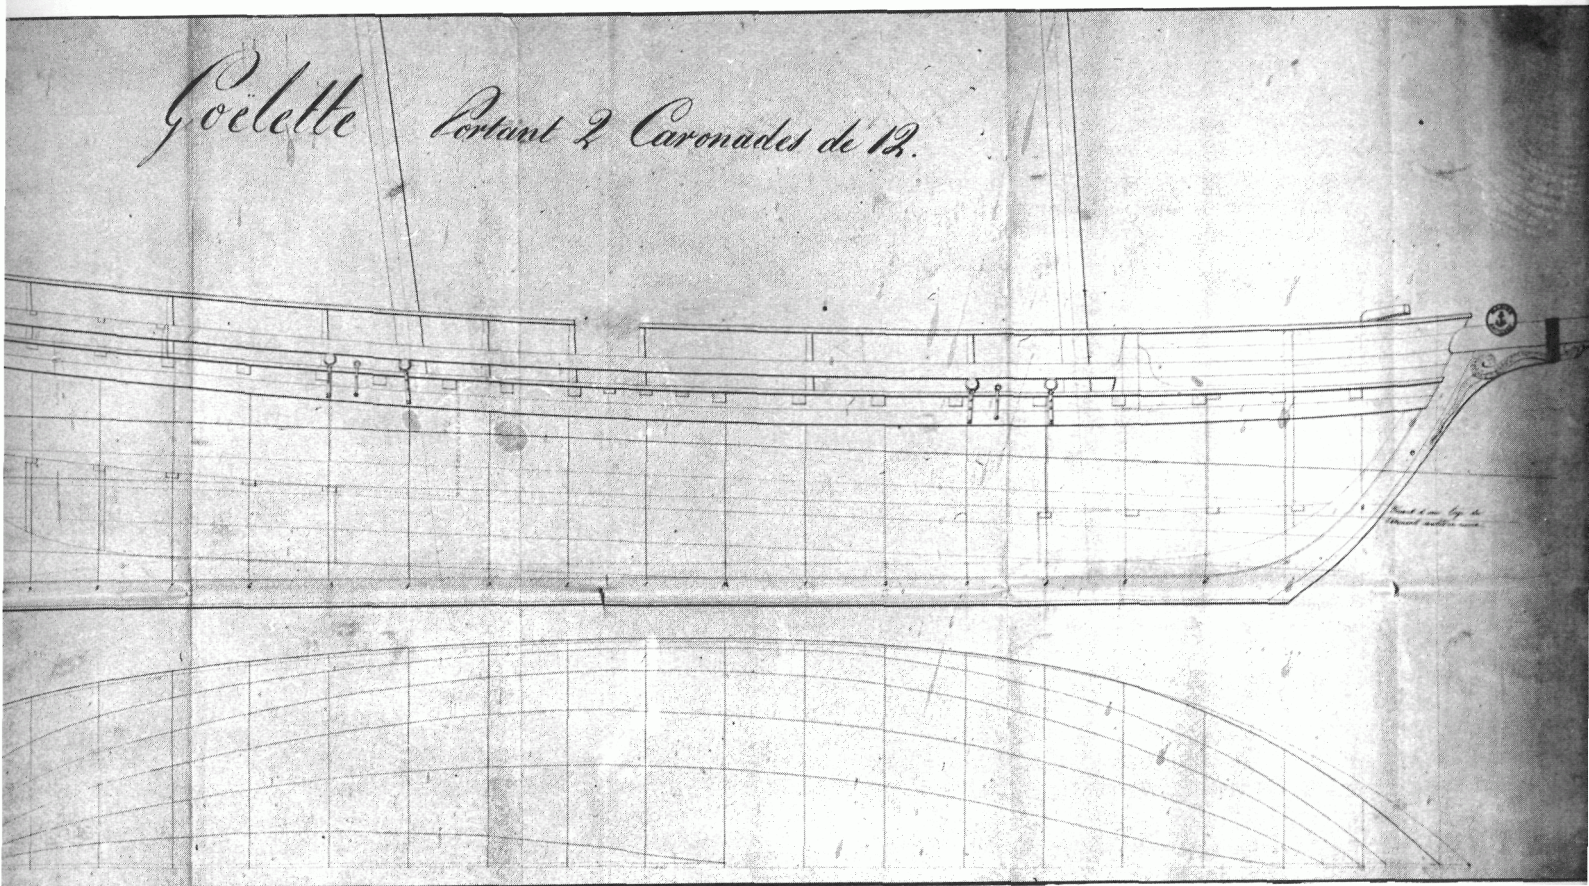 Goëlette Portant 2 Caronades de 12.